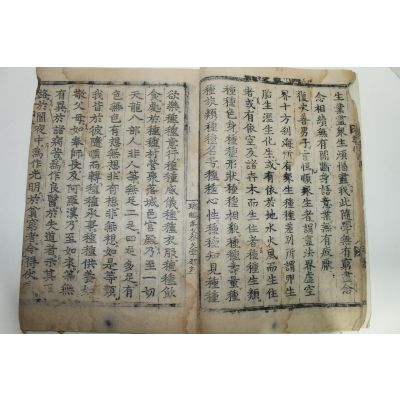 生業盡衆生煩惱盡我此隨學無有窮盡念
念相續無有間斷身語意業無有疲厭
復次善男子言恒順衆生者謂盡法界虛空
界十方刹海所有衆生種種差別所謂卵生
胎生濕生化生或有依於地水火風而生住
者或有依空及諸卉木而生住者種種生類
種種色身種種形狀種種相貌種種壽量種
種族類種種名号種種心性種種知見種種
欲樂種種意行種種威儀種種衣服種種飲
食處於種種村營聚落城邑宮殿乃至一切
天龍八部人非人等無足二足四足多足有
色無色有想無想非有想非無想如是等類
我皆於彼隨順而轉種種承事種種供養如
敬父母如奉師長及阿羅漢乃至如來等無
有異於諸病苦爲作良醫於失道者示其正
路於闇夜中爲作光明於貧窮者令得伏